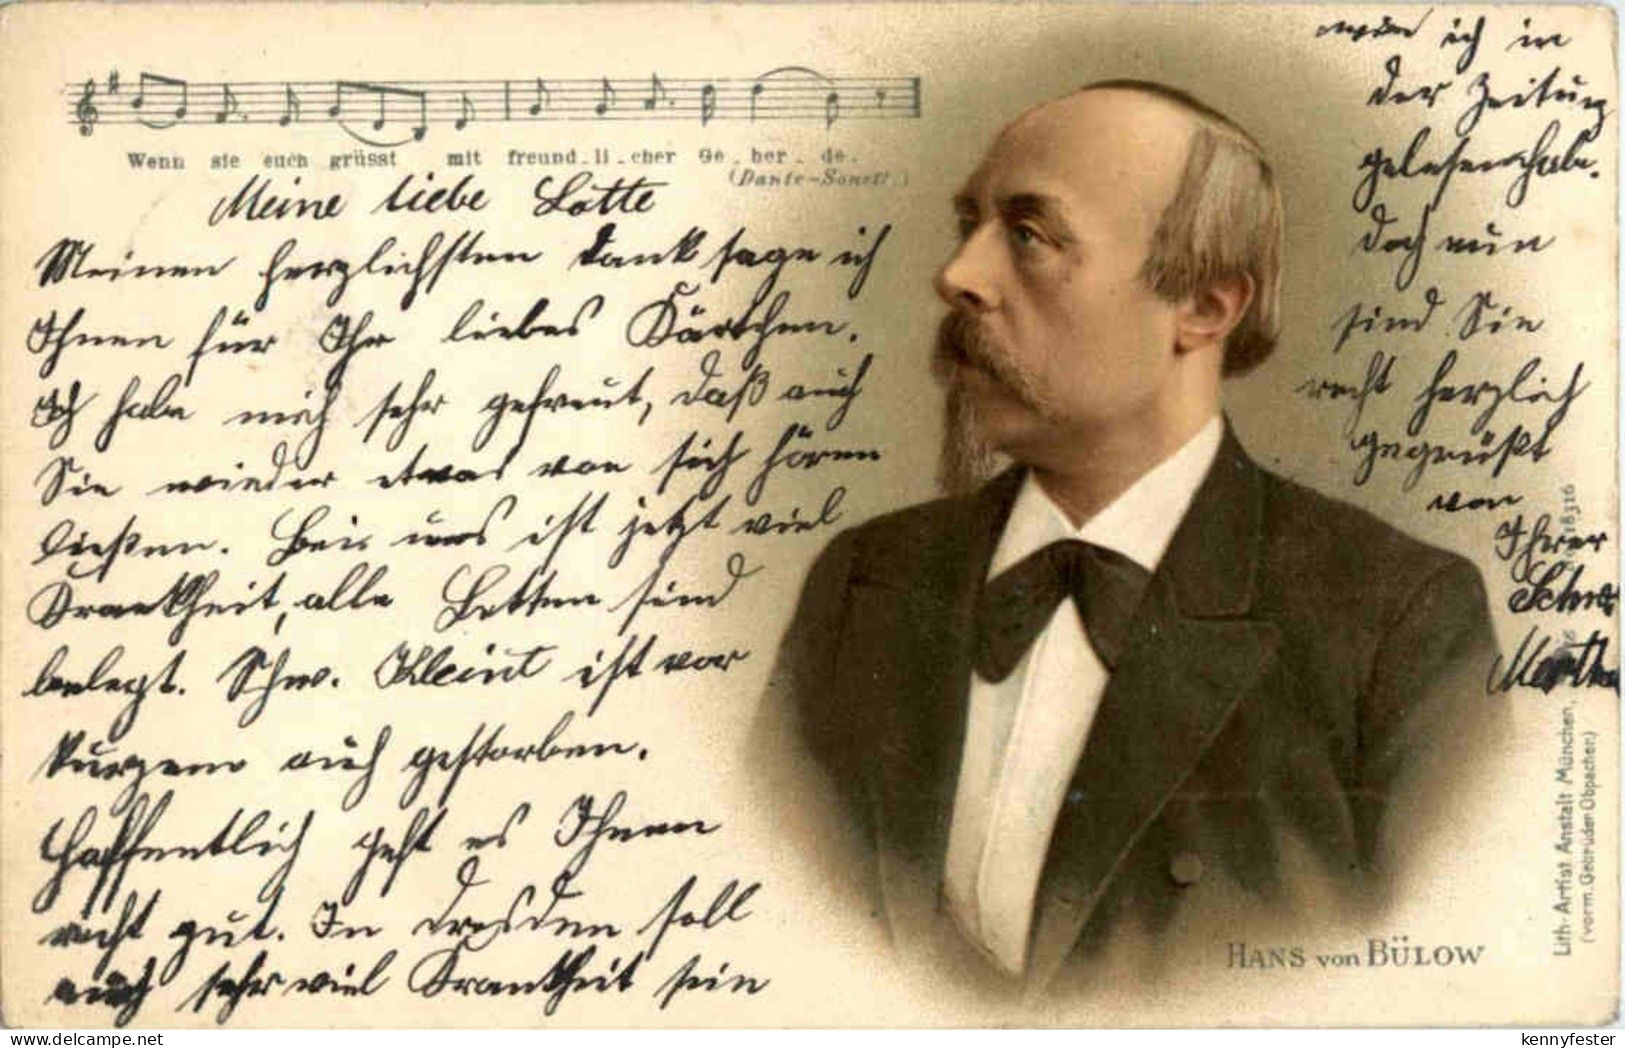 Wenn sie euch grüsst mit freund-li-cher Ge-ber-de.
(Dante-Sonett.)
Meine liebe Lotte
Meinen herzlichsten Dank sage ich
Ihnen für Ihr liebes Kärtchen.
Ich habe mich sehr gefreut, daß auch
Sie wieder etwas von sich hören
ließen. Bei uns ist jetzt viel
Krankheit, alle Betten sind
belegt. Schw. Kleint ist vor
kurzem auch gestorben.
Hoffentlich geht es Ihnen
recht gut. In Dresden soll
auch sehr viel Krankheit sein
wie ich in
der Zeitung
gelesen habe.
Doch nun
sind Sie
recht herzlich
gegrüßt
von
Ihrer
Schw.
Martha
HANS von BÜLOW
Lith.-Artist. Anstalt München, 18316
(vorm. Gebrüder Obpacher)
www.delcampe.net
kennyfester